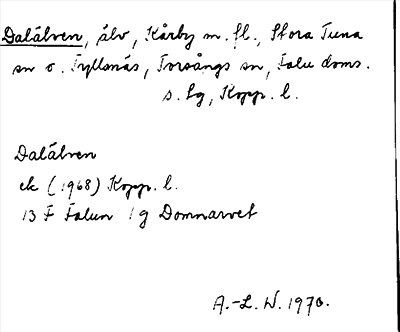 Dalälven, älv, Kårby m.fl., Stora Tuna
sn o. Fyllsnäs, Torsångs sn, Falu doms.
s. lg, Kopp. l.
Dalälven
ek (1968) Kopp. l.
13 F Falun 1 g Domnarvet
A.-L. W. 1970.